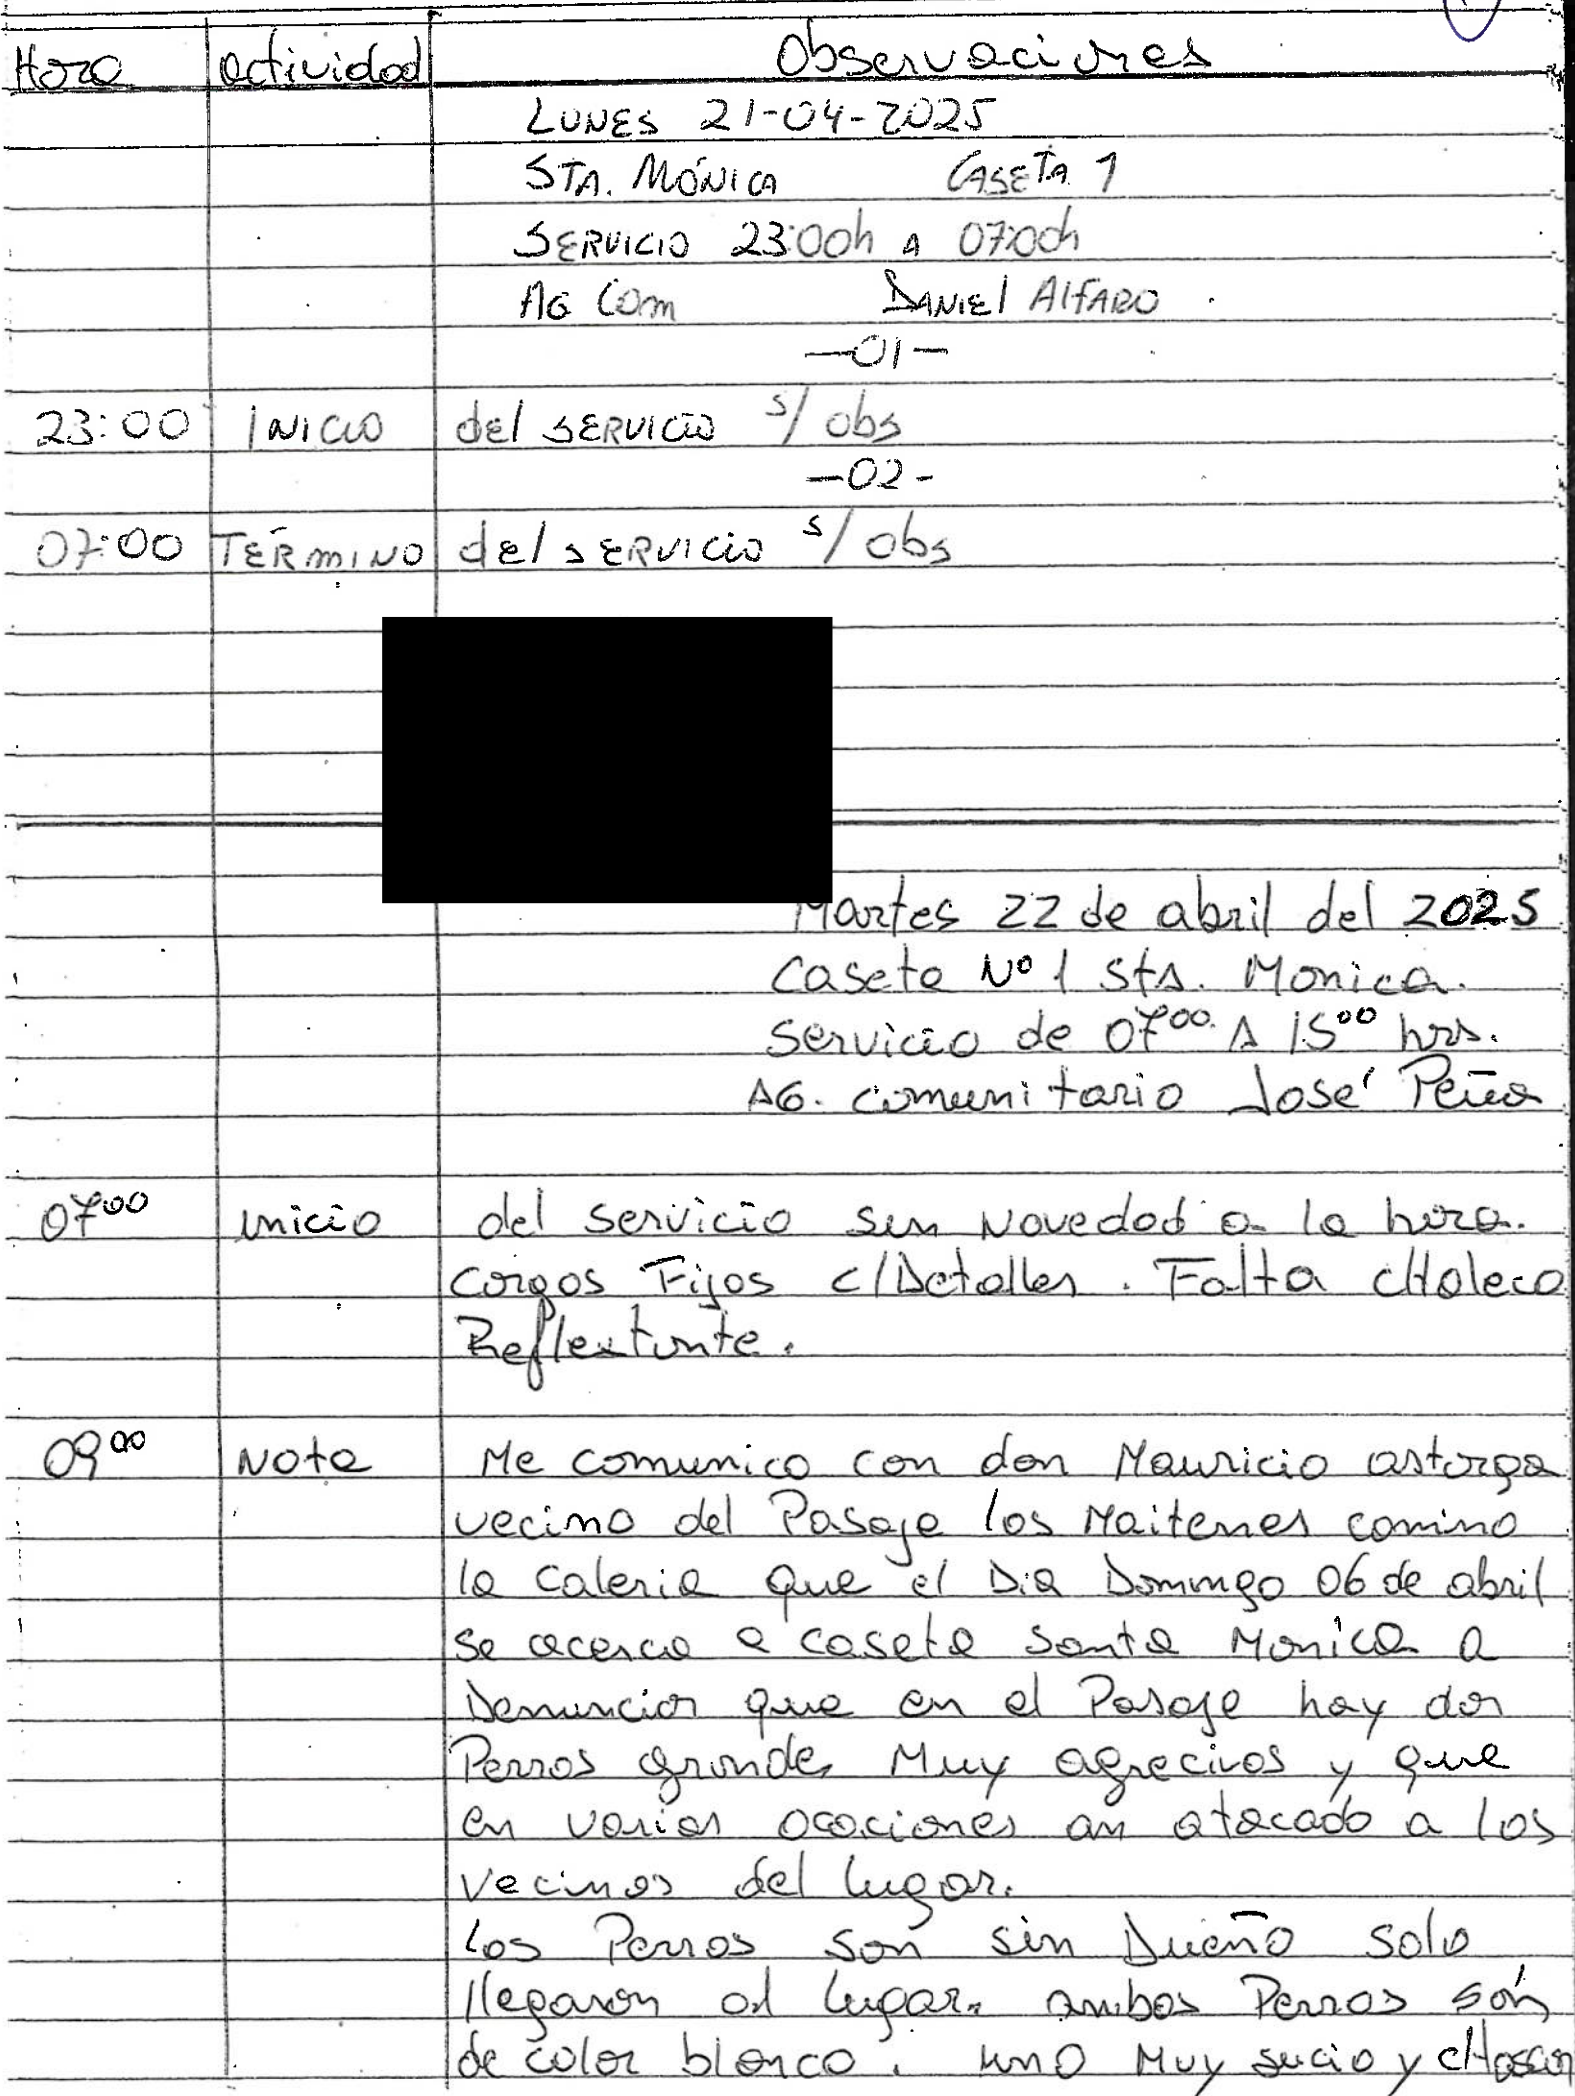 Hora actividad Observaciones
LUNES 21-04-2025
STA. MÓNICA CASETA 1
SERVICIO 23:00h A 07:00h
AG Com DANIEL ALFARO
—01—
23:00 INICIO del SERVICIO s/ obs
—02-
07:00 TÉRMINO del SERVICIO s/ obs
Martes 22 de abril del 2025
Caseta Nº 1 Sta. Monica.
Servicio de 07⁰⁰ A 15⁰⁰ hrs.
AG. comunitario José Peña
07⁰⁰ inicio del servicio sin Novedad a la hora.
Cargos Fijos c/Detalles. Falta cHaleco
Reflextante.
09⁰⁰ Nota Me comunico con don Mauricio astorga
vecino del Pasaje los Maitenes camino
la Caleria que el Dia Domingo 06 de abril
se acerca a caseta Santa Monica a
Denunciar que en el Pasaje hay dos
Perros grandes Muy agrecivos y que
en varias ocaciones an atacado a los
vecinos del lugar.
Los Perros son sin Dueño solo
llegaron al lugar. ambos Perros són
de color blanco. uno Muy sucio y